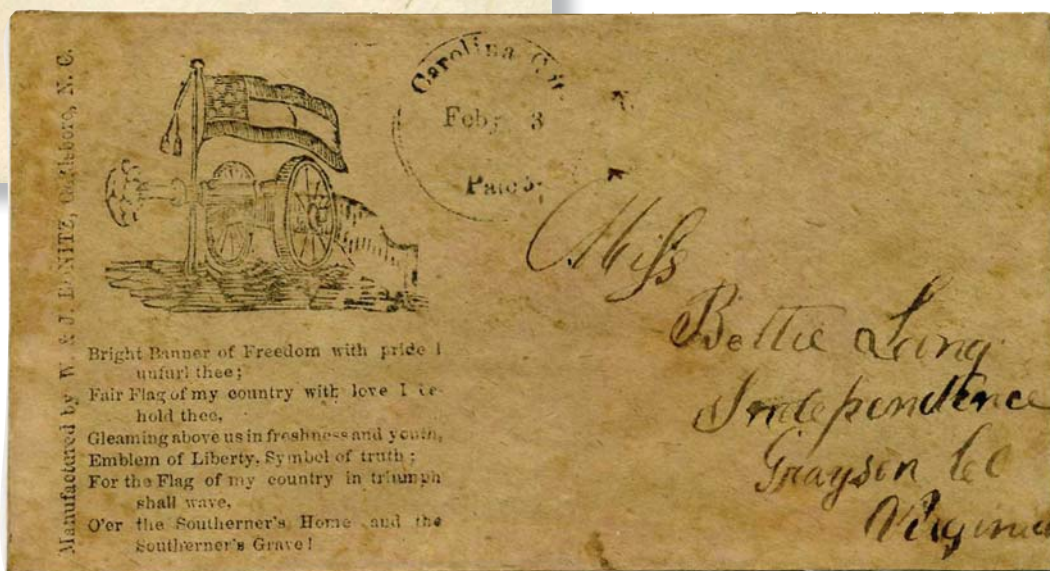 Manufactured by W. & J. BONITZ, Goldsboro, N. C.
Carolina City
Feby 3
Paid 5
Bright Banner of Freedom with pride I
unfurl thee;
Fair Flag of my country with love I be-
hold thee,
Gleaming above us in freshness and youth,
Emblem of Liberty, Symbol of truth;
For the Flag of my country in triumph
shall wave,
O'er the Southerner's Home and the
Southerner's Grave!
Miss
Bettie Long
Independence
Grayson Co
Virginia